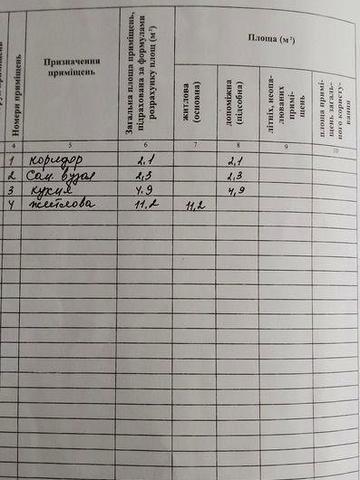 Номери приміщень
Призначення
приміщень
Загальна площа приміщень,
підрахована за формулами
розрахунку площ (м²)
Площа (м²)
житлова
(основна)
допоміжна
(підсобна)
літніх, неопа-
люваних
примі-
щень
площа примі-
щень загаль-
ного користу-
вання
4 5 6 7 8 9 10
1 коридор 2,1 2,1
2 Сан. вузол 2,3 2,3
3 кухня 4,9 4,9
4 житлова 11,2 11,2